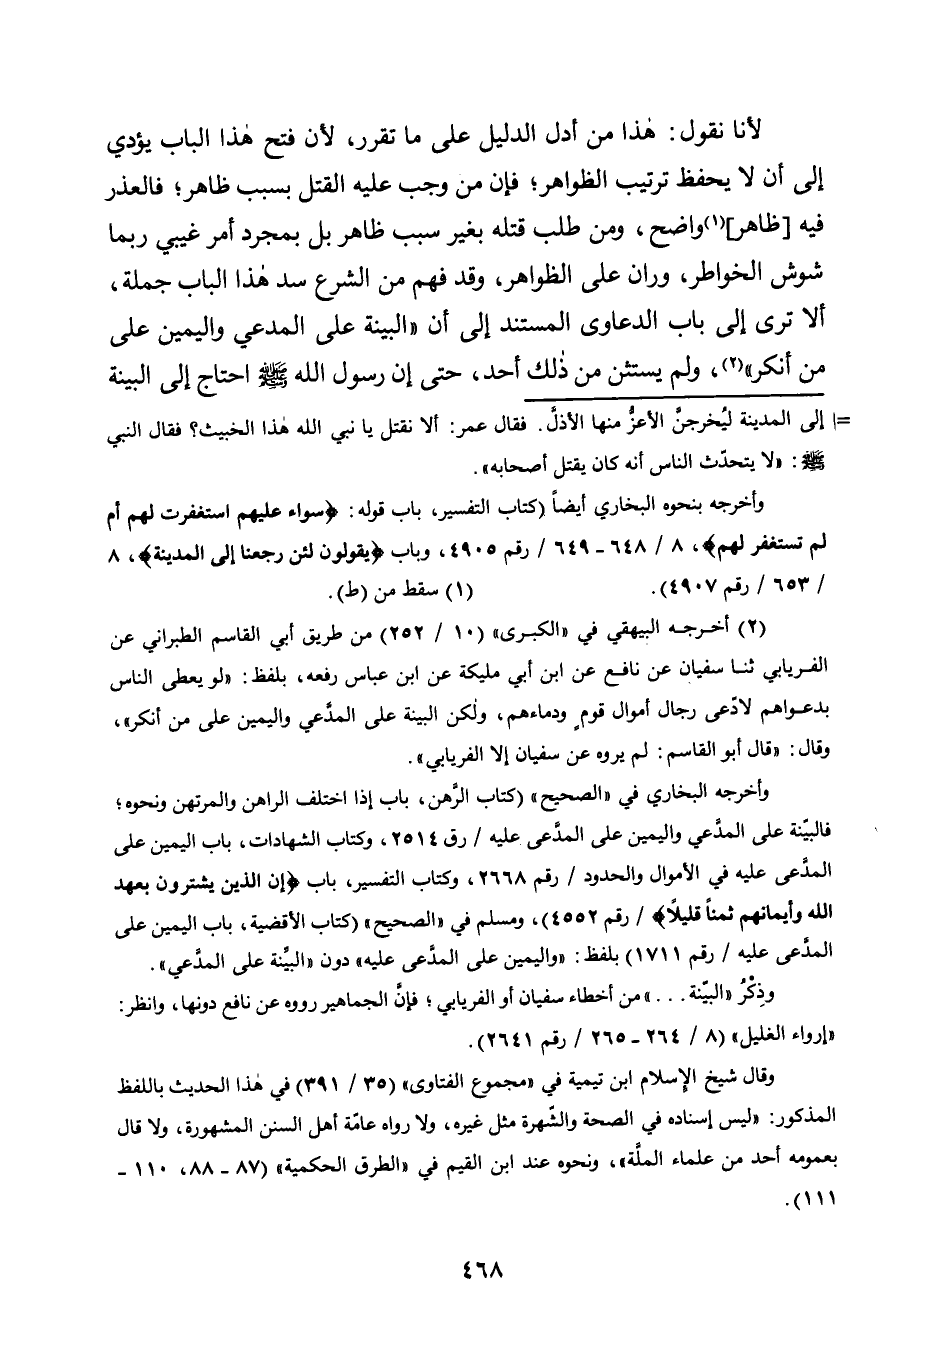 لأنا نقول: هٰذا من أدل الدليل على ما تقرر، لأن فتح هٰذا الباب يؤدي
إلى أن لا يحفظ ترتيب الظواهر؛ فإن من وجب عليه القتل بسبب ظاهر؛ فالعذر
فيه [ظاهر](١)واضح، ومن طلب قتله بغير سبب ظاهر بل بمجرد أمر غيبي ربما
شوش الخواطر، وران على الظواهر، وقد فهم من الشرع سد هٰذا الباب جملة،
ألا ترى إلى باب الدعاوى المستند إلى أن «البينة على المدعي واليمين على
من أنكر»(٢)، ولم يستثن من ذٰلك أحد، حتى إن رسول الله ﷺ احتاج إلى البينة
=| إلى المدينة ليُخرجنَّ الأعزُّ منها الأذلَّ. فقال عمر: ألا نقتل يا نبي الله هٰذا الخبيث؟ فقال النبي
ﷺ: «لا يتحدّث الناس أنه كان يقتل أصحابه».
وأخرجه بنحوه البخاري أيضاً (كتاب التفسير، باب قوله: ﴿سواء عليهم استغفرت لهم أم
لم تستغفر لهم﴾، ٨ / ٦٤٨ - ٦٤٩ / رقم ٤٩٠٥، وباب ﴿يقولون لئن رجعنا إلى المدينة﴾، ٨
/ ٦٥٣ / رقم ٤٩٠٧). (١) سقط من (ط).
(٢) أخرجه البيهقي في «الكبرى» (١٠ / ٢٥٢) من طريق أبي القاسم الطبراني عن
الفريابي ثنا سفيان عن نافع عن ابن أبي مليكة عن ابن عباس رفعه، بلفظ: «لو يعطى الناس
بدعواهم لادّعى رجال أموال قومٍ ودماءهم، ولٰكن البينة على المدَّعي واليمين على من أنكر»،
وقال: «قال أبو القاسم: لم يروه عن سفيان إلا الفريابي».
وأخرجه البخاري في «الصحيح» (كتاب الرَّهن، باب إذا اختلف الراهن والمرتهن ونحوه؛
فالبيّنة على المدَّعي واليمين على المدَّعى عليه / رق ٢٥١٤، وكتاب الشهادات، باب اليمين على
المدَّعى عليه في الأموال والحدود / رقم ٢٦٦٨، وكتاب التفسير، باب ﴿إن الذين يشترون بعهد
الله وأيمانهم ثمناً قليلاً﴾ / رقم ٤٥٥٢)، ومسلم في «الصحيح» (كتاب الأقضية، باب اليمين على
المدَّعى عليه / رقم ١٧١١) بلفظ: «واليمين على المدَّعى عليه» دون «البيِّنة على المدَّعي».
وذِكْرُ «البيّنة ...» من أخطاء سفيان أو الفريابي؛ فإنَّ الجماهير رووه عن نافع دونها، وانظر:
«إرواء الغليل» (٨ / ٢٦٤ - ٢٦٥ / رقم ٢٦٤١).
وقال شيخ الإسلام ابن تيمية في «مجموع الفتاوى» (٣٥ / ٣٩١) في هٰذا الحديث باللفظ
المذكور: «ليس إسناده في الصحة والشّهرة مثل غيره، ولا رواه عامّة أهل السنن المشهورة، ولا قال
بعمومه أحد من علماء الملَّة»، ونحوه عند ابن القيم في «الطرق الحكمية» (٨٧ - ٨٨، ١١٠ -
١١١).
٤٦٨